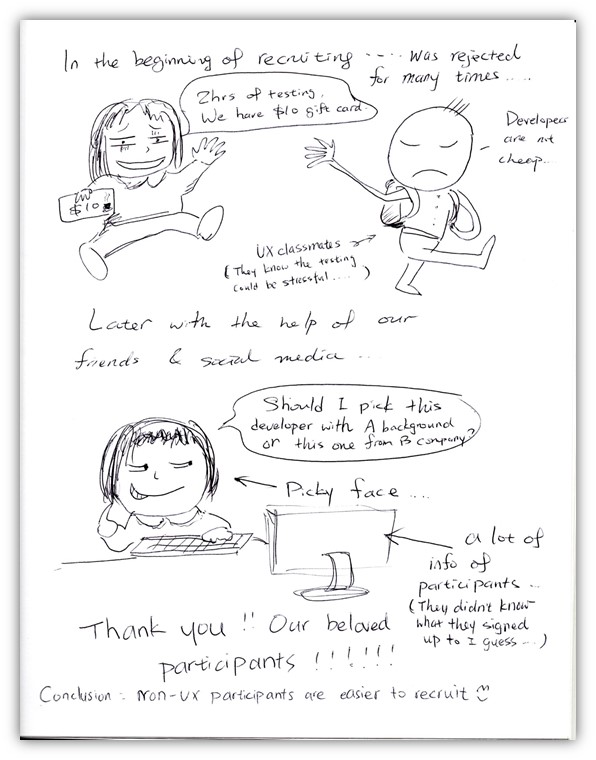 In the beginning of recruiting ..... was rejected
for many times....
2hrs of testing,
We have $10 gift card.
Developers
are not
cheap..
$10
UX classmates
(They know the testing
could be stressful.....)
Later with the help of our
friends & social media ...
Should I pick this
developer with A background
or this one from B company?
Picky face ...
a lot of
info of
participants ...
(They didn't know
what they signed
up to I guess...)
Thank you !! Our beloved
participants !!!!!!
Conclusion : non-UX participants are easier to recruit